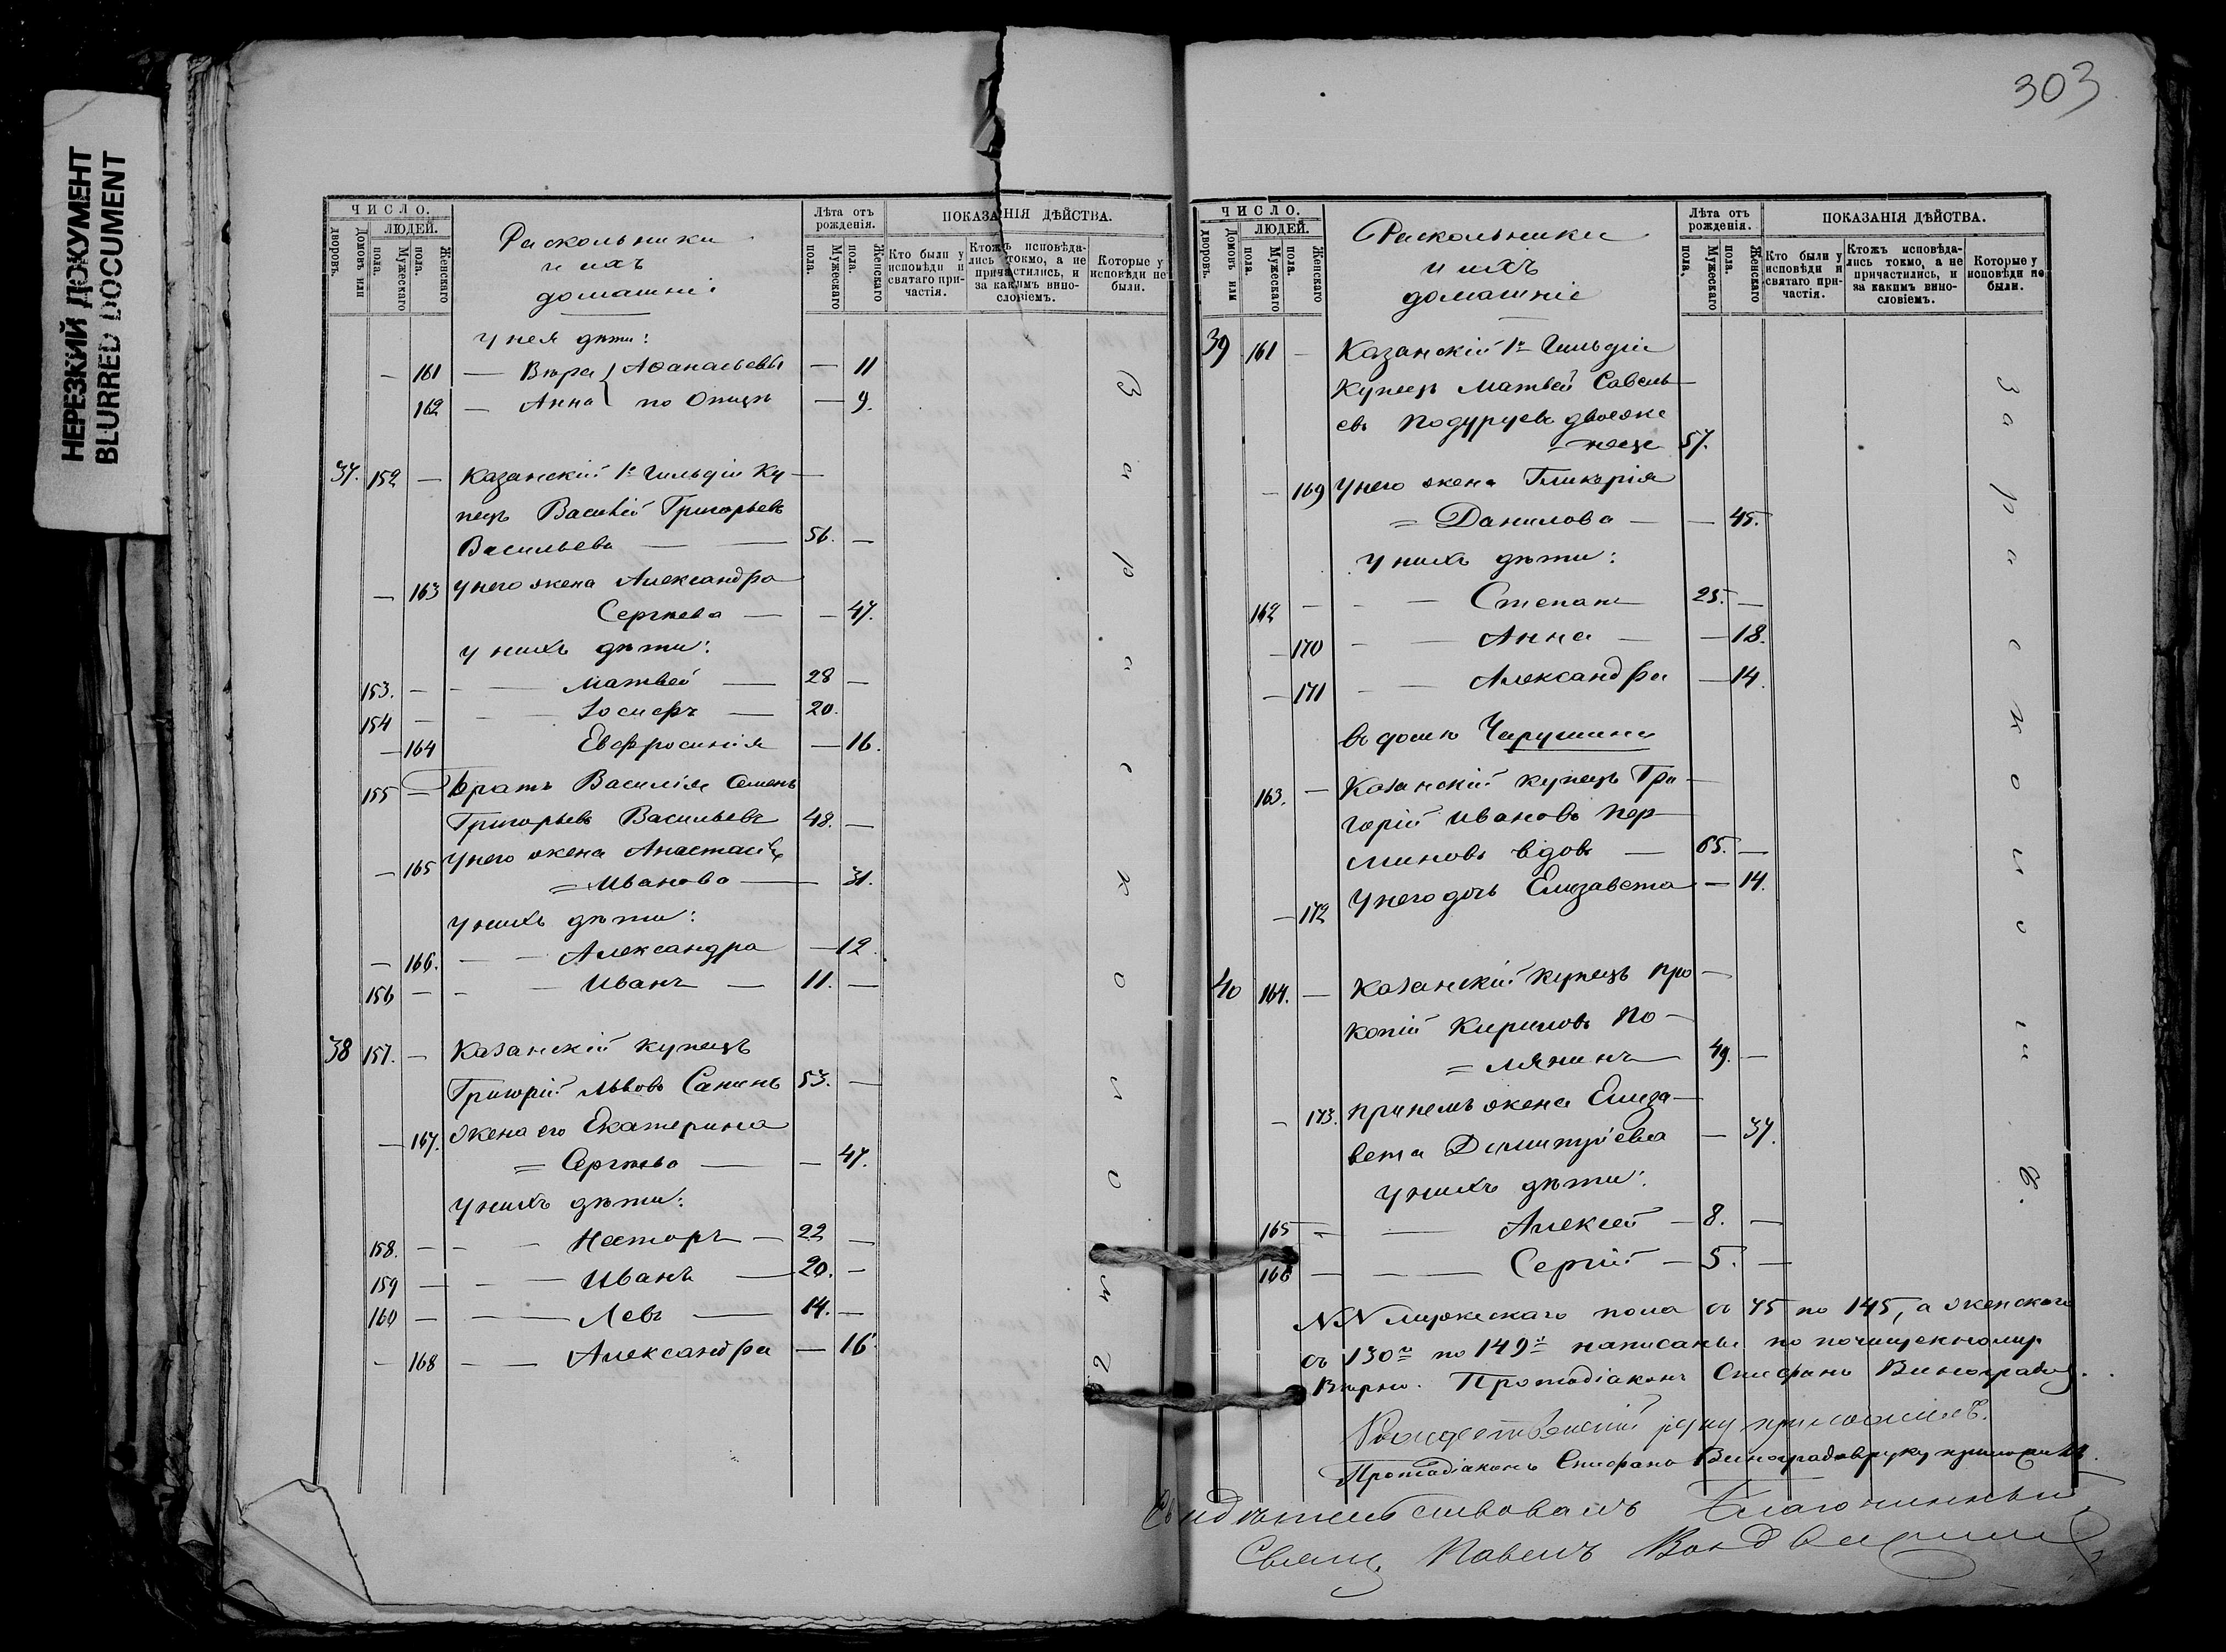 НЕРЕЗКИЙ ДОКУМЕНТ
BLURRED DOCUMENT
ЧИСЛО.
ЛЮДЕЙ.
Домовъ или дворовъ.
Мужескаго пола.
Женскаго пола.
Раскольники
и ихъ
домашніе
Лѣта отъ рожденія.
Мужескаго пола.
Женскаго пола.
ПОКАЗАНІЯ ДѢЙСТВА.
Кто были у исповѣди и святаго причастія.
Ктожъ исповѣдались токмо, а не причастились, и за какимъ винословіемъ.
Которые у исповѣди не были.
У нея дѣти:
— 161 — Вѣра } Аѳанасьевы — 11
162 — Анна } по Отцѣ — 9.
37. 152 — Казанскій 1й Гильдіи Ку-
пецъ Василій Григорьевъ
Васильевъ — 56. —
— 163 У него жена Александра
Сергѣева — — 47.
У нихъ дѣти:
153. — — — Матвей — 28 —
154 — — — Іосифъ — 20.
— 164 Евфросинія — 16.
155 — Братъ Василія Семенъ
Григорьевъ Васильевъ 48. —
— 165 У него жена Анастасія
= Иванова — 31.
У нихъ дѣти:
— 166. — — Александра — 12
156 — — — Иванъ — 11. —
38 157. — Казанскій купецъ
Григорій Львовъ Санинъ 53. —
— 167. Жена его Екатерина
= Сергѣева — — 47.
У нихъ дѣти:
158. — — — Несторъ — 22 —
159 — — — Иванъ — 20. —
160 — — — Левъ — 14. —
— 168 — — Александра — 16
303
ЧИСЛО.
ЛЮДЕЙ.
Домовъ или дворовъ.
Мужескаго пола.
Женскаго пола.
Раскольники
и ихъ
домашніе
Лѣта отъ рожденія.
Мужескаго пола.
Женскаго пола.
ПОКАЗАНІЯ ДѢЙСТВА.
Кто были у исповѣди и святаго причастія.
Ктожъ исповѣдались токмо, а не причастились, и за какимъ винословіемъ.
Которые у исповѣди не были.
39 161 — Казанскій 1й Гильдіи
Купецъ Матвей Савель-
евъ Подуруевъ двоеже
-нецъ 57.
— 169 У него жена Гликерія
= Данилова — — 45.
У нихъ дѣти:
162 — — — Степанъ 25. —
— 170 — — Анна — — 18.
— 171 — — Александра — 14.
въ домѣ Чарушина
163. — Казанскій купецъ Гри-
горій Ивановъ Пер-
миновъ вдовъ — 65. —
— 172 У него дочь Елизавета — 14.
40 164. — Казанскій купецъ Про-
копій Кириловъ По-
= лянинъ — 49. —
— 173. При немъ жена Елиза-
вета Димитріева — 37.
У нихъ дѣти:
165 — — Алексей — 8. —
166 — — — Сергій — 5. —
NN мужескаго пола съ 75 по 145, а женскаго
съ 130й по 149й написаны по почищенному.
Вѣрно. Протодіаконъ Епифанъ Виноградовъ.
Рождественскій руку приложилъ.
Протодіаконъ Епифанъ Виноградовъ руку приложилъ.
Свидѣтельствовалъ Благочинный
Свящ. Павелъ